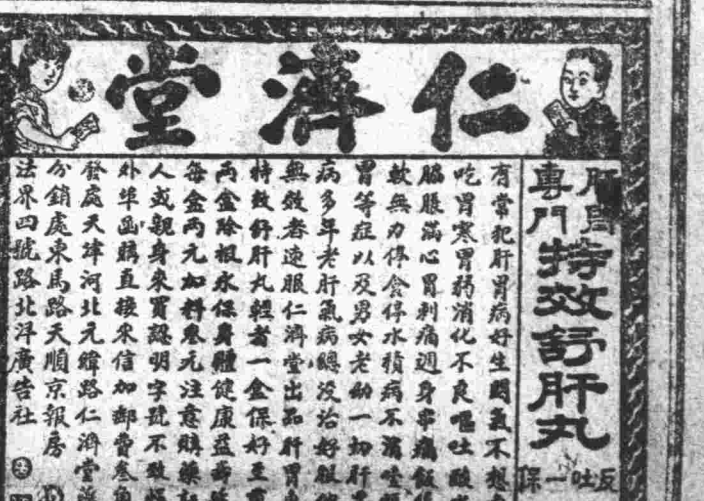 仁濟堂
肝胃
專門
特效舒肝丸
反吐一保
有常犯肝胃病好生悶氣不想
吃胃寒胃弱消化不良嘔吐酸
腦脹滿心胃刺痛週身串痛飯
軟無力停食停水積病不消
胃等症以及男女老幼一切肝
病多年老肝氣病總没治好服
無效者速服仁濟堂出品肝胃
特效舒肝丸輕者一盒保好至重
兩盒除根永保身體健康益壽
每盒兩元加料叁元注意購藥
人或親身來買認明字號不致
外埠函購直接來信加郵費叁角
發處天津河北元緯路仁濟堂
分銷處東馬路天順京報房
法界四號路北洋廣告社